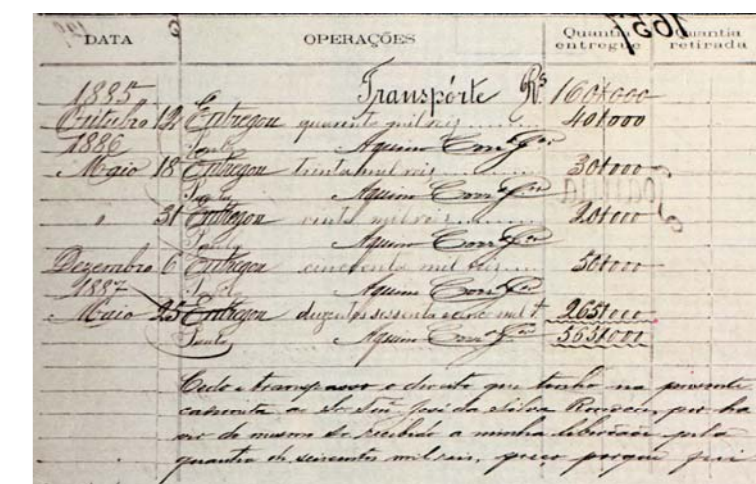 1657
DATA OPERAÇÕES Quantia entregue Quantia retirada
1885 Transpórte Rs 160$000
Outubro 12 Entregou quarenta mil reis 40$000
1886 Aquino
Maio 18 Entregou trinta mil reis 30$000
Aquino
" 31 Entregou vinte mil reis 20$000
Aquino
Dezembro 6 Entregou cincoenta mil reis 50$000
1887 Aquino
Maio 25 Entregou duzentos sessenta e cinco mil 265$000
Aquino 565$000
Cedo e transpasso o direito que tenho na presente
caderneta ao Sr. José da Silva por ha
ver do mesmo Sr. recebido a minha liberdade pela
quantia de seiscentos mil reis, preço porque fui